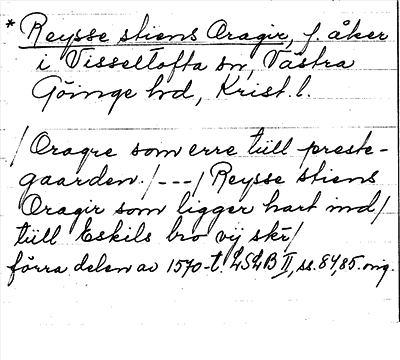 * Reysse stiens Oragir, f. åker
i Visseltofta sn, Västra
Göinge hd, Krist. l.
/Oragre som erre tiill preste-
gaarden./---/Reysse stiens
Oragir som ligger hart ind/
tiill Eskils bro vij skr/
förra delen av 1570-t. LSLB II, ss. 84, 85. orig.